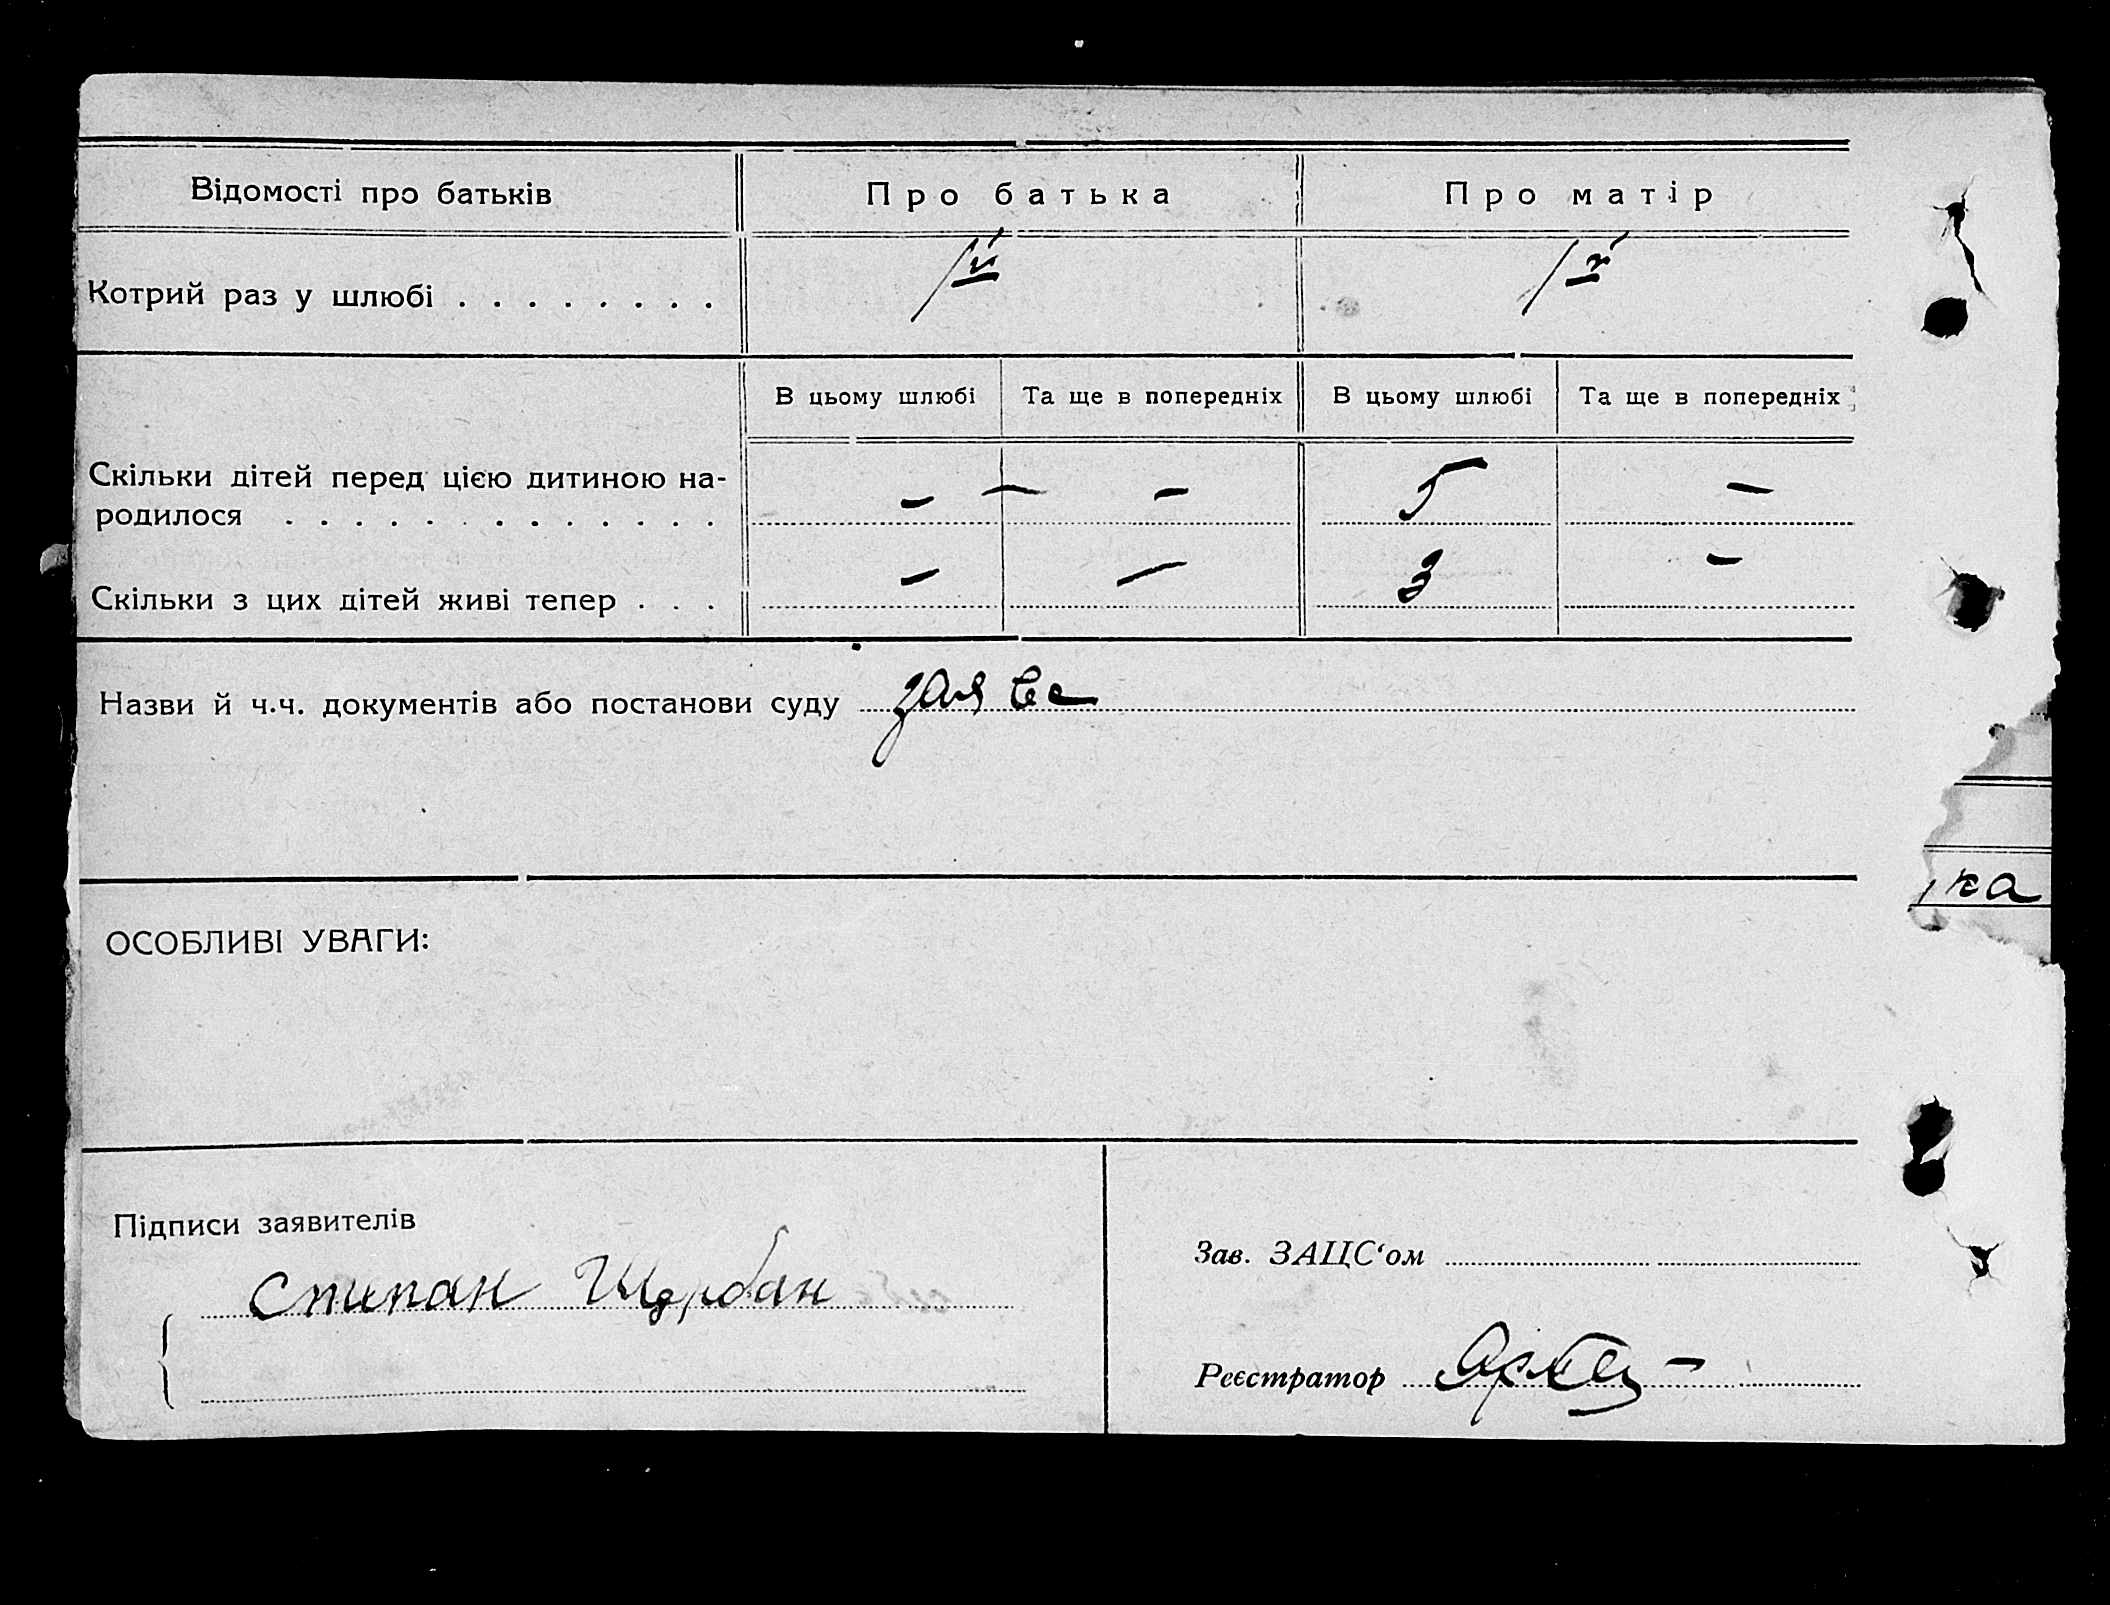 Відомості про батьків Про батька Про матір
Котрий раз у шлюбі . . . . . . . . 1й 1й
В цьому шлюбі Та ще в попередніх В цьому шлюбі Та ще в попередніх
Скільки дітей перед цією дитиною на-
родилося . . . . . . . . . . . . . – – – 5 –
Скільки з цих дітей живі тепер . . . – – 3 –
Назви й ч.ч. документів або постанови суду заява
ка
ОСОБЛИВІ УВАГИ:
Підписи заявителів
Степан Щербан
Зав. ЗАЦС‘ом
Реєстратор